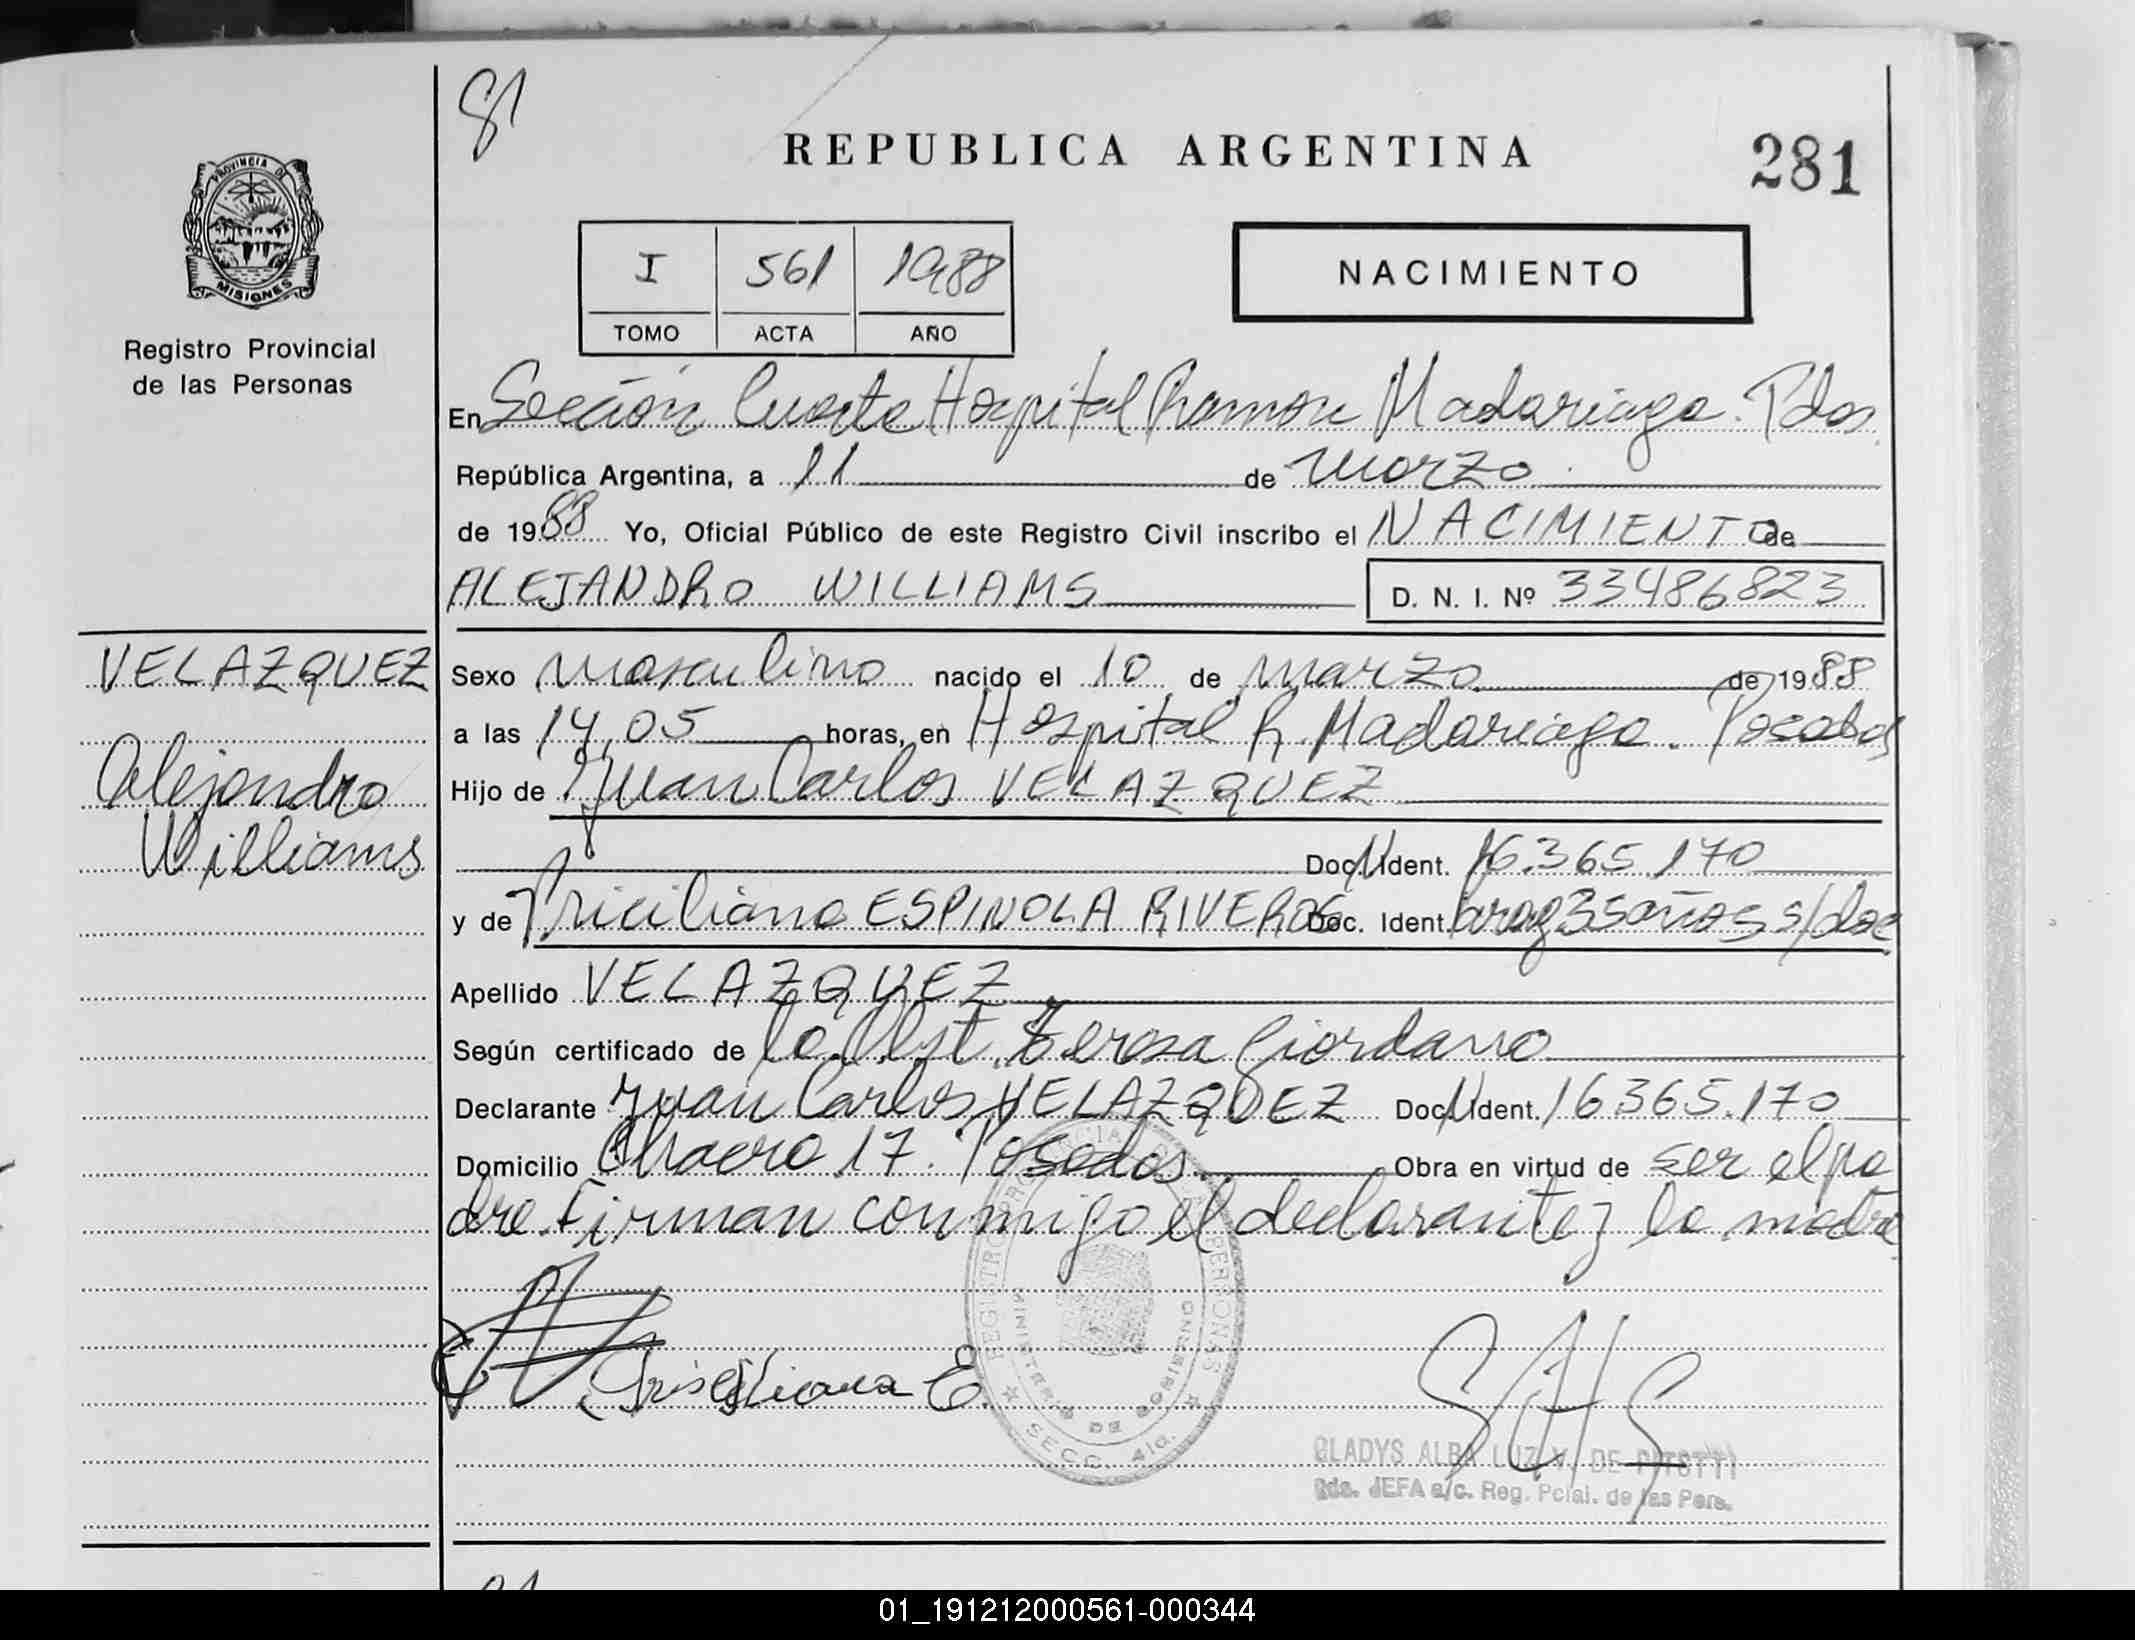 81
REPUBLICA ARGENTINA
281
PROVINCIA DE
MISIONES
Registro Provincial
de las Personas
I 561 1988
TOMO ACTA AÑO
NACIMIENTO
En Sección Cuarta Hospital Ramon Madariaga. Pdas.
República Argentina, a 11 de Marzo
de 1988 Yo, Oficial Público de este Registro Civil inscribo el NACIMIENTO de
ALEJANDRO WILLIAMS D. N. I. Nº 33486823
VELAZQUEZ
Alejandro
Williams
Sexo Masculino nacido el 10 de Marzo de 1988
a las 14,05 horas, en Hospital R. Madariaga. Posadas
Hijo de Juan Carlos VELAZQUEZ
Doc. Ident. 16.365.170
y de ESPINOLA RIVEROS Doc. Ident. 35 años s/doc
Apellido VELAZQUEZ
Según certificado de la Obst. Teresa Giordano
Declarante Juan Carlos VELAZQUEZ Doc. Ident. 16365.170
Domicilio Chacra 17. Posadas. Obra en virtud de ser el pa
dre. Firman conmigo el declarante y la madre
E.
REGISTRO PROVINCIAL DE LAS PERSONAS
MINISTERIO DE GOBIERNO
SECC. 4ta.
GLADYS ALBA LUZ V. DE
JEFA a/c. Reg. Pcial. de las Pers.
01_191212000561-000344